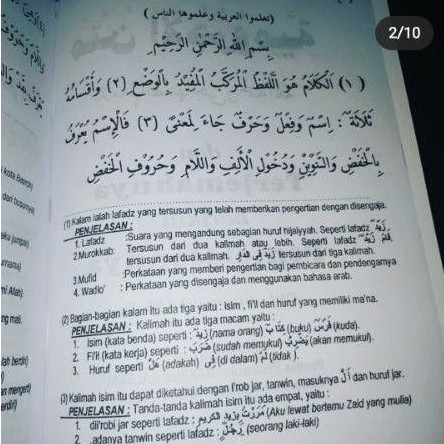 2/10
( تعلموا العربية وعلموها الناس )
بِسْمِ اللهِ الرَّحْمٰنِ الرَّحِيْمِ
( ١ ) اَلْكَلَامُ هُوَ اللَّفْظُ الْمُرَكَّبُ الْمُفِيْدُ بِالْوَضْعِ (٢) وَأَقْسَامُهُ
ثَلَاثَةٌ : اِسْمٌ وَفِعْلٌ وَحَرْفٌ جَاءَ لِمَعْنًى (٣) فَالْاِسْمُ يُعْرَفُ
بِالْخَفْضِ وَالتَّنْوِيْنِ وَدُخُوْلِ الْأَلِفِ وَاللَّامِ وَحُرُوْفِ الْخَفْضِ
(1) Kalam ialah lafadz yang tersusun yang telah memberikan pengertian dengan disengaja.
PENJELASAN :
1. Lafadz : Suara yang mengandung sebagian huruf hijaiyyah. Seperti lafadz زَيْدٌ
2. Murokkab: Tersusun dari dua kalimah atau lebih. Seperti lafadz قَامَ زَيْدٌ
tersusun dari dua kalimah. زَيْدٌ فِي الدَّارِ tersusun dari tiga kalimah.
3. Mufid : Perkataan yang memberi pengertian bagi pembicara dan pendengarnya
4. Wadlo' : Perkataan yang disengaja dan menggunakan bahasa arab.
(2) Bagian-bagian kalam itu ada tiga yaitu : isim , fi'il dan huruf yang memiliki ma'na.
PENJELASAN : Kalimah itu ada tiga macam yaitu :
1. Isim (kata benda) seperti : زَيْدٌ (nama orang) كِتَابٌ (buku) فَرَسٌ (kuda).
2. Fi'il (kata kerja) seperti : ضَرَبَ (sudah memukul) يَضْرِبُ (akan memukul).
3. Huruf seperti هَلْ (adakah) فِي (di dalam) لَمْ (tidak ).
(3) Kalimah isim itu dapat diketahui dengan I'rob jar, tanwin, masuknya اَلْ dan huruf jar.
PENJELASAN : Tanda-tanda kalimah isim itu ada empat, yaitu :
1. diI'robi jar seperti lafadz : مَرَرْتُ بِزَيْدٍ الْكَرِيْمِ (Aku lewat bertemu Zaid yang mulia)
2. adanya tanwin seperti lafadz : رَجُلٌ (seorang laki-laki)